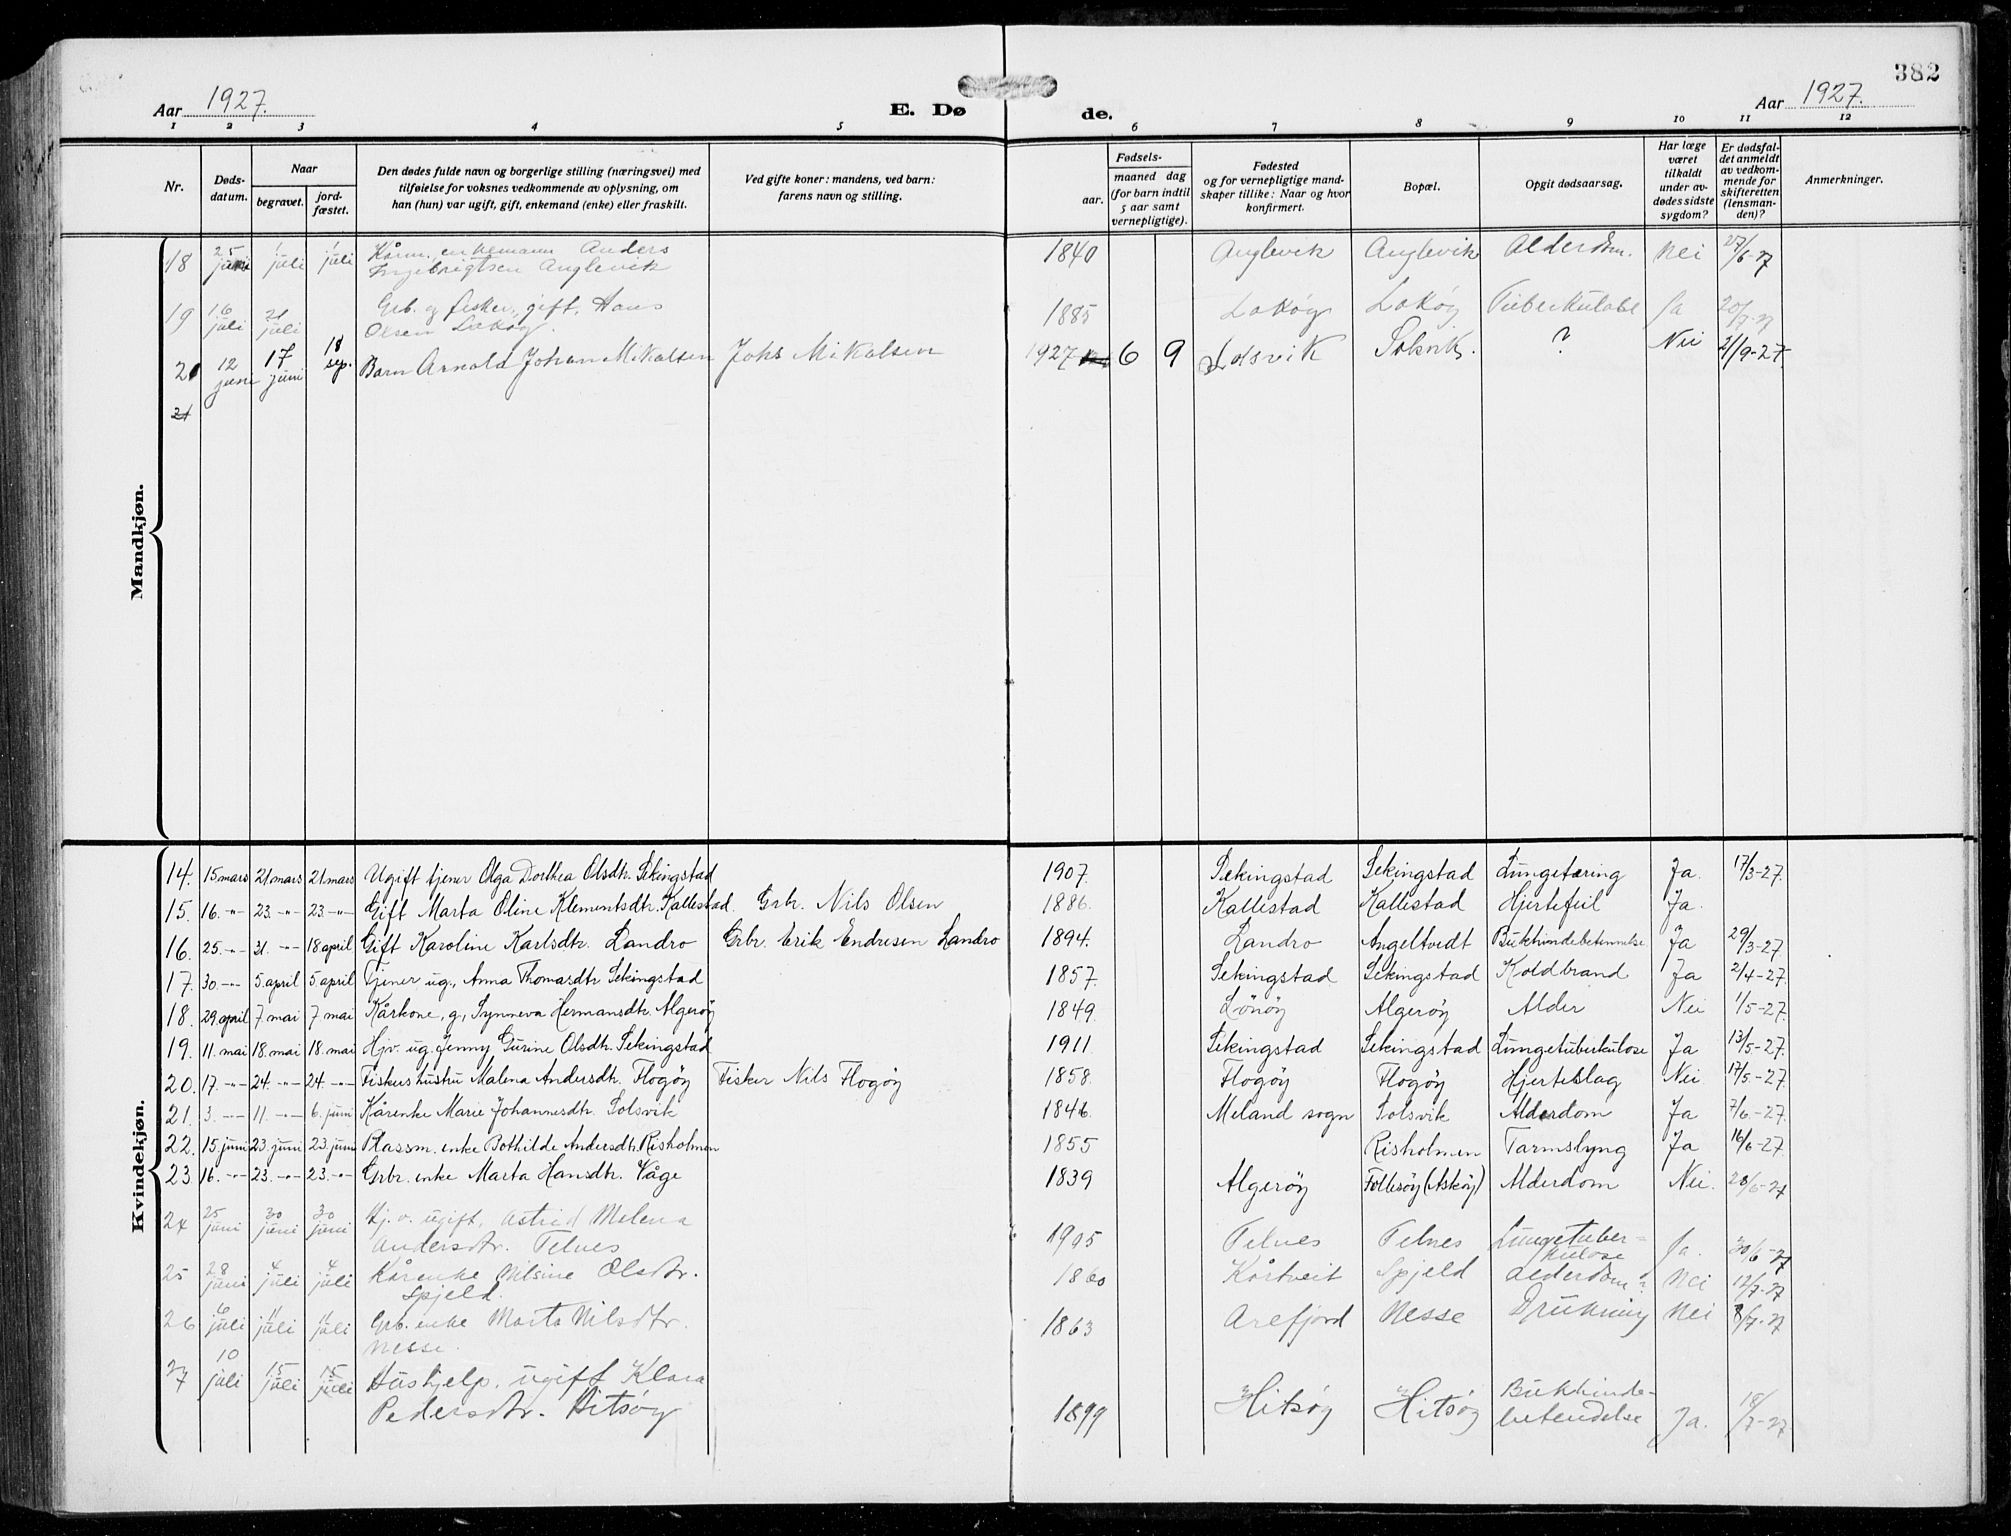 382
Aar 1927.
E. Dø de.
Aar 1927.
1 2 3 4 5 6 7 8 9 10 11 12
Nr.
Dødsdatum.
Naar
begravet.
jordfæstet.
Den dødes fulde navn og borgerlige stilling (næringsvei) med
tilføielse for voksnes vedkommende av oplysning, om
han (hun) var ugift, gift, enkemand (enke) eller fraskilt.
Ved gifte koner: mandens, ved barn:
farens navn og stilling.
Fødsels-
aar. maaned dag
(for barn indtil
5 aar samt
vernepligtige).
Fødested
og for vernepligtige mand-
skaper tillike: Naar og hvor
konfirmert.
Bopæl.
Opgit dødsaarsag.
Har læge
været
tilkaldt
under av-
dødes sidste
sygdom?
Er dødsfal-
det anmeldt
av vedkom-
mende for
skifteretten
(lensman-
den)?
Anmerkninger.
Mandkjøn.
18 25 juni 1 juli 1 juli Kårm. enkemann Anders
Ingebrigtsen Anglevik 1840 Anglevik Anglevik Alderdom. Nei 27/6-27
19 16 juli 21 juli Grb. og fisker, gift, Hans
Olsen Lokøy. 1885 Lokøy Lokøy Tuberkulose Ja 20/7-27
20 12 juni 17 juni 18 sep. Barn Arnold Johan Mikalsen Johs Mikalsen 1927 6 9 Solsvik Solsvik. ? Nei 21/9-27.
21
Kvindekjøn.
14. 15 mars 21 mars 21 mars Ugift tjener Olga Dorthea Olsdtr. Sekingstad 1907. Sekingstad Sekingstad Lungetæring Ja. 17/3-27.
15. 16. -"- 23. -"- 23. -"- Gift Marta Oline Klementsdtr. Kallestad Grb. Nils Olsen 1886. Kallestad Kallestad Hjertefeil Ja.
16. 25. -"- 31. -"- 18 april Gift Karoline Karlsdtr. Landro Grbr. Erik Endresen Landro 1894. Landro Angeltvedt Bukhindebetennelse Ja 29/3-27.
17. 30. -"- 5. april 5 april Tjener ug., Anna Thomasdtr Sekingstad 1857. Sekingstad Sekingstad Koldbrand Ja 2/4-27.
18. 29 april 7. mai 7 mai Kårkone, g, Synneva Hermansdtr. Algerøy 1849. Lönöy Algerøy Alder Nei 1/5-27.
19. 11. mai 18. mai 18. mai Hjv. ug. Jenny Gurine Olsdtr. Sekingstad 1911. Sekingstad Sekingstad Lungetuberkulose Ja 13/5-27.
20. 17. -"- 24. -"- 24. -"- Fiskers hustru Malena Andersdtr. Flogøy Fisker Nils Flogøy 1858. Flogøy Flogøy Hjerteslag Nei 17/5-27.
21. 3 -"- 11. -"- 6. juni Kårenke Marie Johannesdtr. Solsvik 1846. Meland sogn Solsvik Alderdom Ja 7/6-27.
22. 15 juni 23 juni 23 juni Plassm. enke Bothilde Andersdtr. Risholmen 1855 Risholmen Tarmslyng Ja 16/6-27.
23. 16. -"- 23. -"- 23. -"- Grbr. enke Marta Hansdtr. Våge 1839 Algerøy Follesøy (Askøy) Alderdom Nei. 20/6-27
24 25 juni 30 juni 30 juni Hj. v. ugift, Astrid Malena
Andersdtr. Telnes 1905 Telnes Telnes Lungetuber-
kulose Ja. 30/6-27
25 28 juni 4 juli 4 juli Kårenke Nilsine Olsdtr.
Spjeld. 1860 Kårtveit Spjeld Alderdom? Nei 17/7-27
26 6 juli 11 juli 11 juli Grb. enke Marta Nilsdtr.
Nesse. 1863 Arefjord Nesse Drukning Nei 8/7-27
27 10 juli 15 juli 15 juli Hushjelp, ugift Klara
Pedersdtr. Hitsøy 1899 Hitsøy Hitsøy Bukhinde-
betendelse Ja. 18/7-27